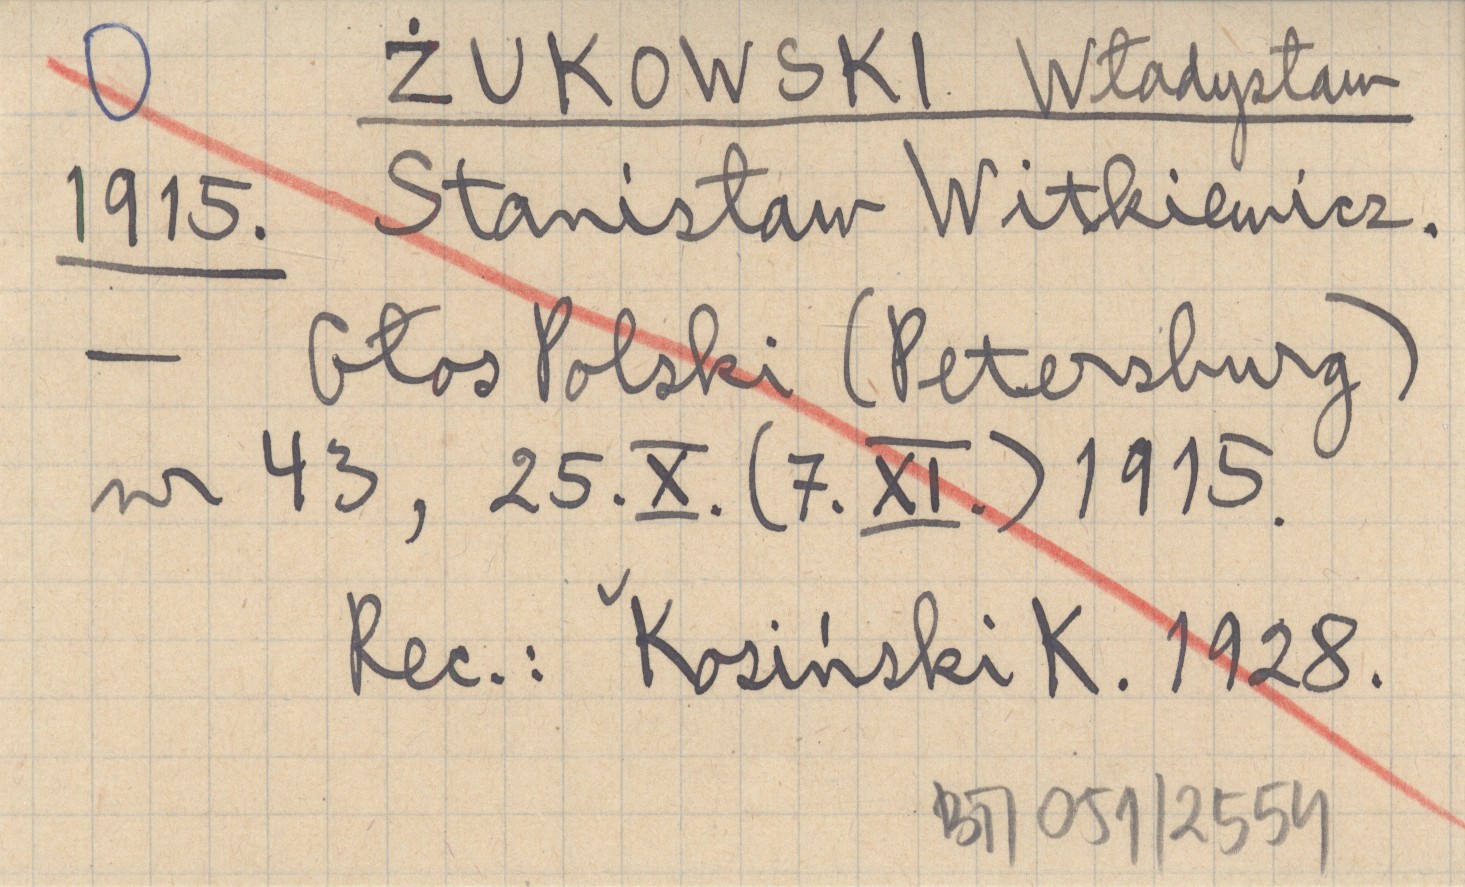 ŻUKOWSKI Władysław
1915. Stanisław Witkiewicz.
— Głos Polski (Petersburg)
nr 43, 25.X.(7.XI.) 1915.
Rec.: Kosiński K. 1928.
051/2554